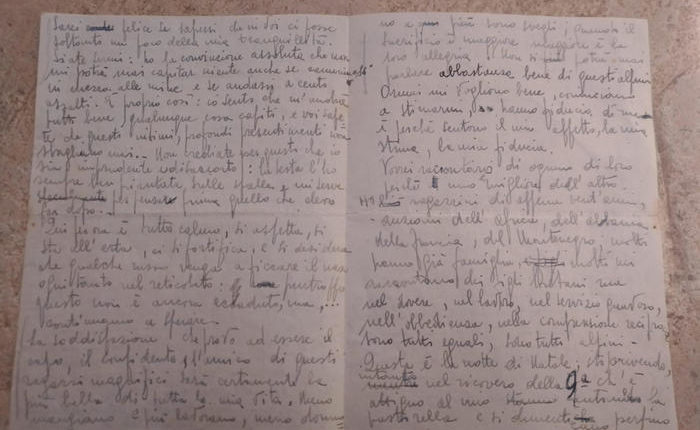 Sarei felice se sapessi che in voi ci fosse
soltanto un poco della mia tranquillità.
Siate sereni: ho la convinzione assoluta che non
mi potrà mai capitar niente anche se camminassi
in mezzo alle mine e se andassi a cento
assalti. È proprio così: io sento che m'andrà
tutto bene, qualunque cosa capiti, e voi sape-
te che questi intimi, profondi presentimenti non
sbagliano mai... Non crediate per questo che io
sia imprudente volontario: la testa l'ho
sempre ben piantata sulle spalle e mi serve
per pensare prima quello che devo
far dopo.
Qui finora è tutto calmo, si aspetta, si
sta all'erta, ci si fortifica, e si desidera
che qualche russo venga a ficcare il naso
ghiottone nel reticolato: purtroppo
questo non è ancora accaduto, ma ...
continuiamo a sperare.
La soddisfazione che provo ad essere il
capo, il confidente, l'amico di questi
ragazzi magnifici sarà certamente la
più bella di tutta la mia vita. Meno
mangiano e più lavorano, meno dormo
no e più sono svegli; quando il
sacrificio è maggiore maggiore è la
loro allegria. Non si potrà mai
parlare abbastanza bene di questi alpini.
Ormai mi vogliono bene, cominciano
a stimarmi, hanno fiducia di me
perché sentono il mio affetto, la mia
stima, la mia fiducia.
Vorrei raccontarvi di ognuno di loro
perché uno migliore dell'altro.
ragazzini di appena vent'anni,
anziani dell'Africa, dell'Albania
della Francia, del Montenegro, molti
hanno già famiglia, molti mi
raccontano dei figli lontani ma
nel dovere, nel lavoro, nel servizio gravoso,
nell'obbedienza, nella comprensione recipro
sono tutti eguali, sono tutti alpini.
Questa è la notte di Natale: sto scrivendo,
nel ricovero della 9ª ch'è
attiguo al mio cantano la
pastorella e si dimentica perfino